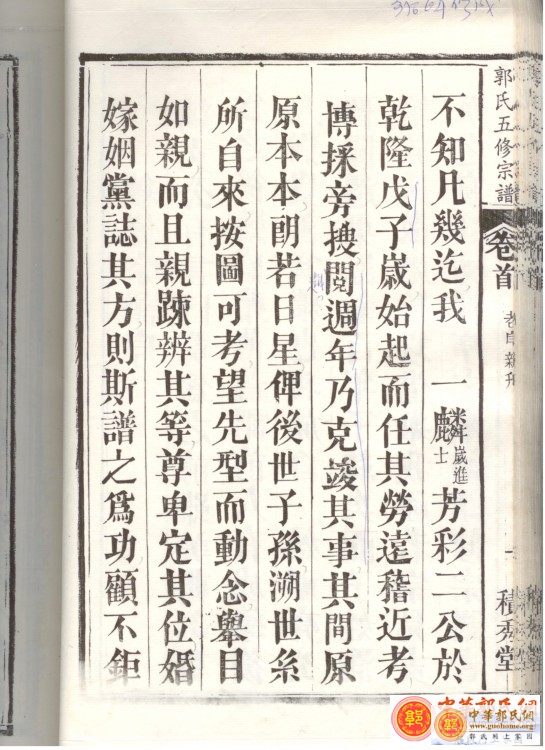 郭氏五修宗譜
卷首
積秀堂
不知凡幾迄我 一麟歲進士芳彩二公於
乾隆戊子歲始起而任其勞遠稽近考
博採旁搜閱週年乃克竣其事其間原
原本本朗若日星俾後世子孫溯世系
所自來按圖可考望先型而動念舉目
如親而且親踈辨其等尊卑定其位婚
嫁姻黨誌其方則斯譜之為功顧不鉅
中華郭氏網
www.guohome.org
郭氏網上家園